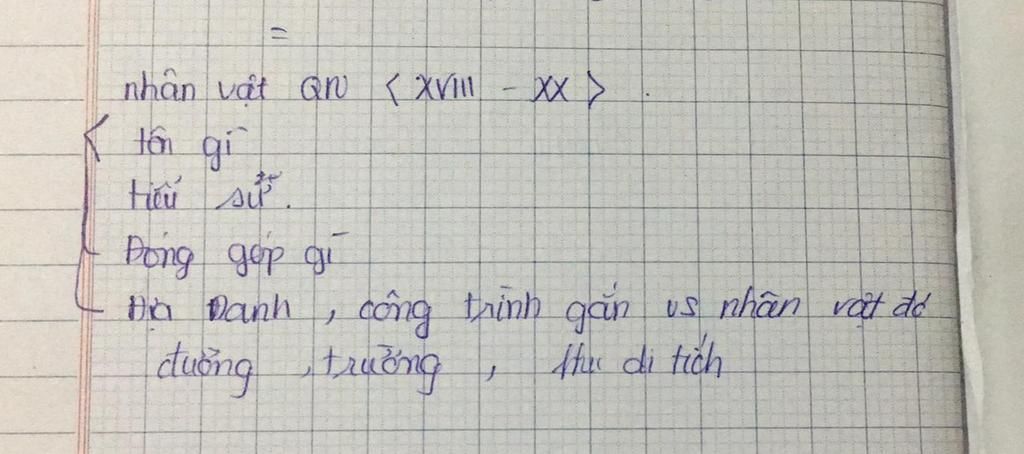 =
nhân vật QN < XVIII - XX > .
tên gì
tiểu sử.
Đóng góp gì
Địa Danh, công trình gắn vs nhân vật đó
đường, trường, khu di tích